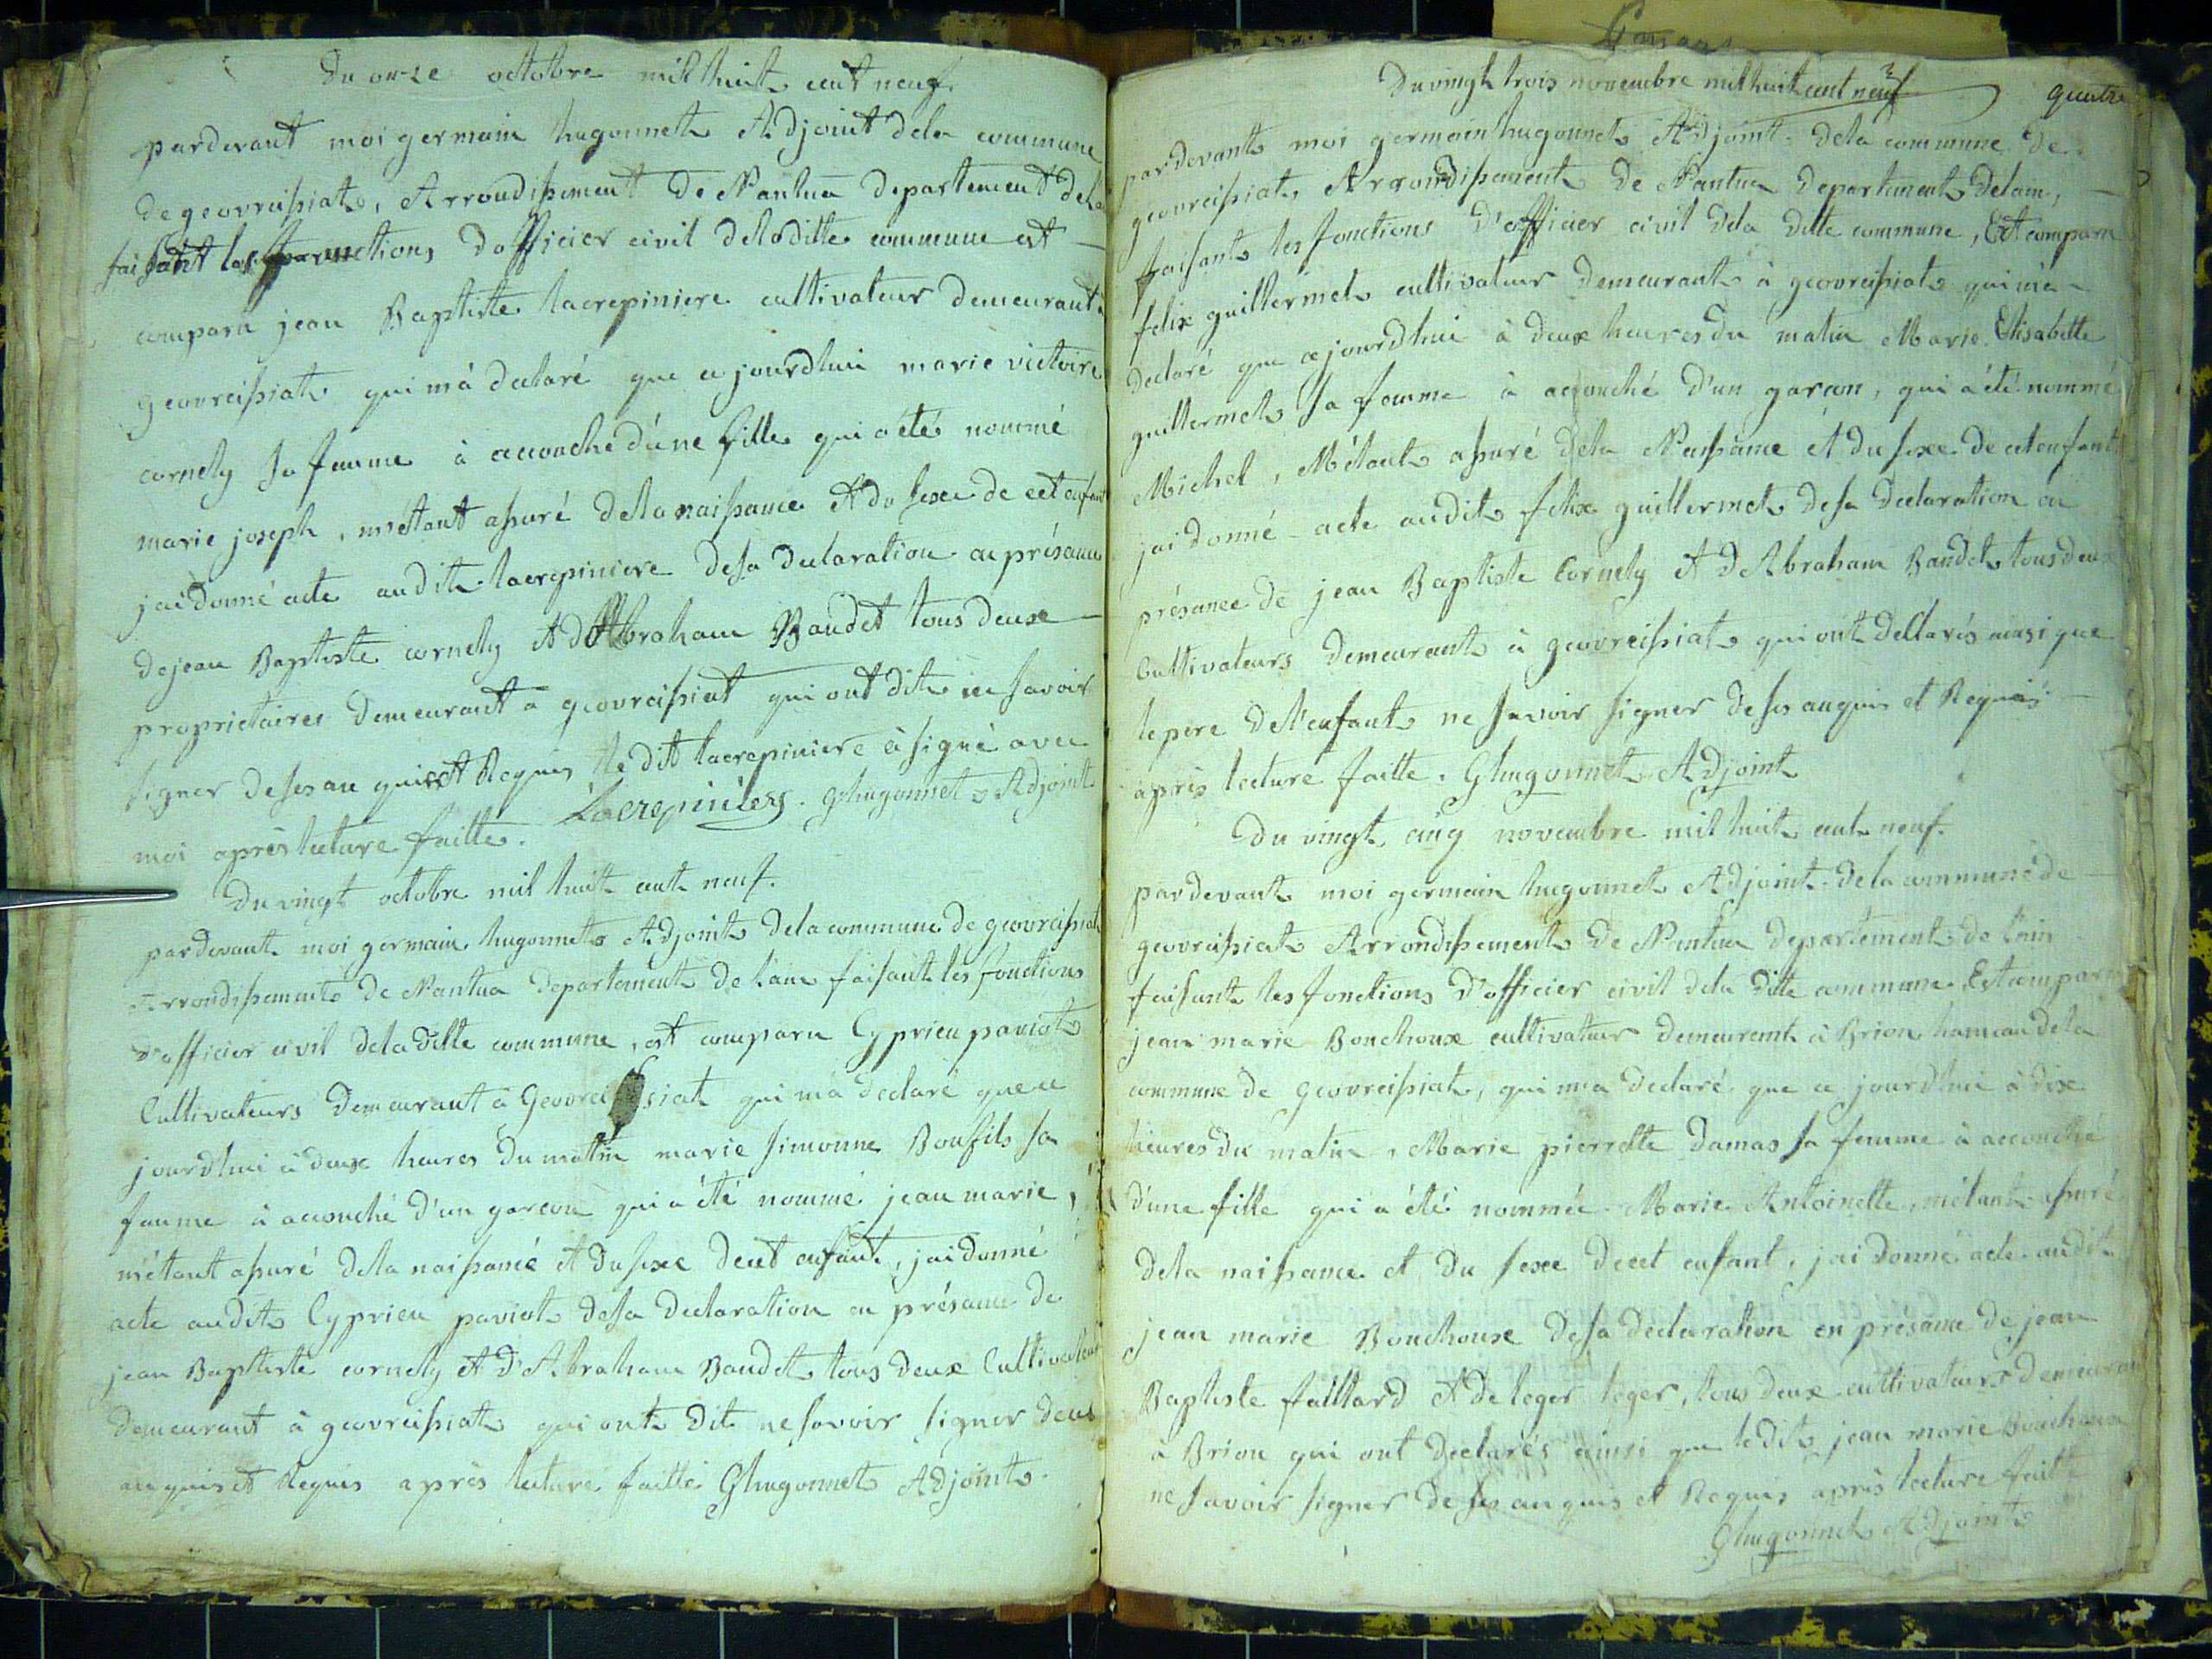 Du onze octobre mil huit cent neuf.
pardevant moi germain hugonnet Adjoint dela commune
de geovreissiat, Arrondissement De Nantua departement de l'ain
faisant les fonctions Dofficier civil deladitte commune est
comparu jean Baptiste lacrepiniere cultivateur demeurant à
geovreissiat qui mà declaré que ce jourdhui marie victoire
cornely sa femme à accouché d'une fille qui a été nommé
marie joseph, m'étant assuré dela naissance Et du sexe de cet enfant
jai donné acte audit lacrepiniere desa declaration en présance
de jean Baptiste cornely Et d'Abraham Baudet tous deux
proprietaires demeurant à geovreissiat qui ont dit ne savoir
signer deses en quis et Requis le dit lacrepiniere à signé avec
moi après lecture faitte. Lacrepiniere. Ghugonnet Adjoint
Du vingt octobre mil huit cent neuf.
pardevant moi germain hugonnet Adjoint dela commune de geovreissiat
Arrondissement de Nantua Departement de lain faisant les fonctions
d'officier civil deladitte commune, est comparu Cyprien paviot
Cultivateurs demeurant à Geovreissiat qui mà declaré que ce
jourdhui à deux heures du matin marie simonne Bonfils sa
femme à accouché d'un garcon qui à été nommé jean marie,
m'étant assuré dela naissance et du sexe decet enfant, jai donné
acte audit Cyprien paviot desa declaration en présance de
jean Baptiste cornely et d'Abraham Baudet tous deux Cultivateurs
demeurant à geovreissiat qui ont dit ne savoir signer deces
en quis et Requis après lecture faitte Ghugonnet Adjoint.
quatre
Du vingt trois novembre mil huit cent neuf
pardevant moi germain hugonnet Adjoint dela commune de
geovreissiat, Arrondissement De Nantua departement Delain,
faisant les fonctions D'officier civil dela ditte commune, Est comparu
felix guillermet cultivateur Demeurant à geovreissiat qui m'à
Declaré que cejourdhui à deux heures du matin Marie Elisabette
guillermet sa femme à accouché D'un garcon, qui à été nommé
Michel, M'étant assuré dela Naissance et du sexe de cet enfant
jai donné acte audit felix guillermet desa declaration en
présance de jean Baptiste Cornely et d'Abraham Baudet tous deux
Cultivateurs demeurant à geovreissiat qui ont déclarés ainsi que
le pere del'enfant ne savoir signer deses enquis et Requis
après lecture faitte. Ghugonnet Adjoint
Du vingt cinq novembre mil huit cent neuf.
pardevant moi germain hugonnet Adjoint dela commune de
geovreissiat Arrondissement de Nantua departement de l'ain
faisant les fonctions d'officier civil dela ditte commune Est comparu
jean marie Bouchoux cultivateur demeurant à Brion hameau dela
commune de geovreissiat, qui m'a declaré que ce jourdhui à dix
heures du matin, Marie pierrette Damas sa femme à accouché
d'une fille qui à été nommée Marie Antoinette, m'étant assuré
dela naissance et du sexe decet enfant, jai donné acte audit
jean marie Bouchoux desa declaration en présance de jean
Baptiste faillard et de leger leger, tous deux cultivateurs demeurant
à Brion qui ont declarés ainsi que ledit jean marie Bouchoux
ne savoir signer de ses enquis et Requis après lecture faitte
Ghugonnet Adjoint